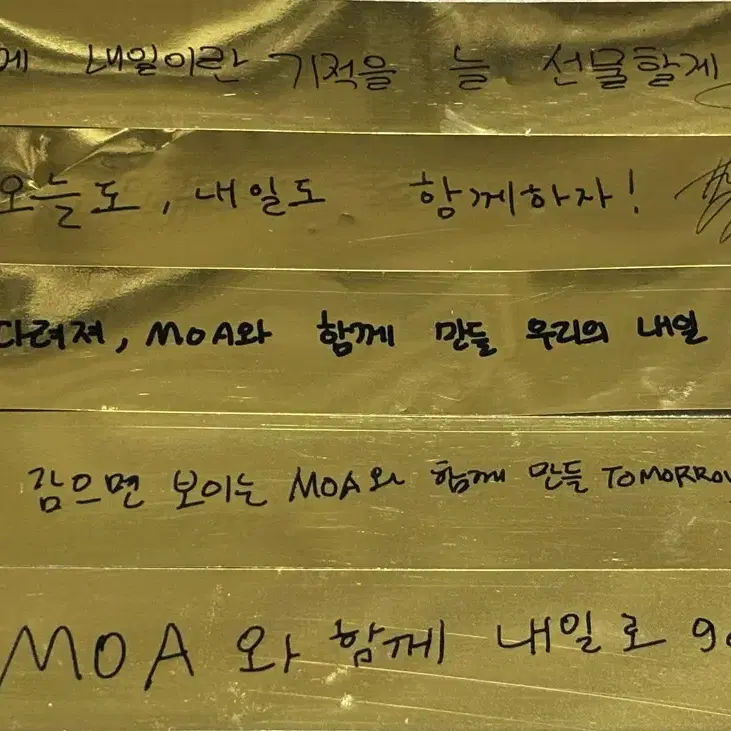 게 내일이란 기적을 늘 선물할게
오늘도, 내일도 함께하자!
다려져, MOA와 함께 만들 우리의 내일
감으면 보이는 MOA와 함께 만들 TOMORROW
MOA와 함께 내일로 go